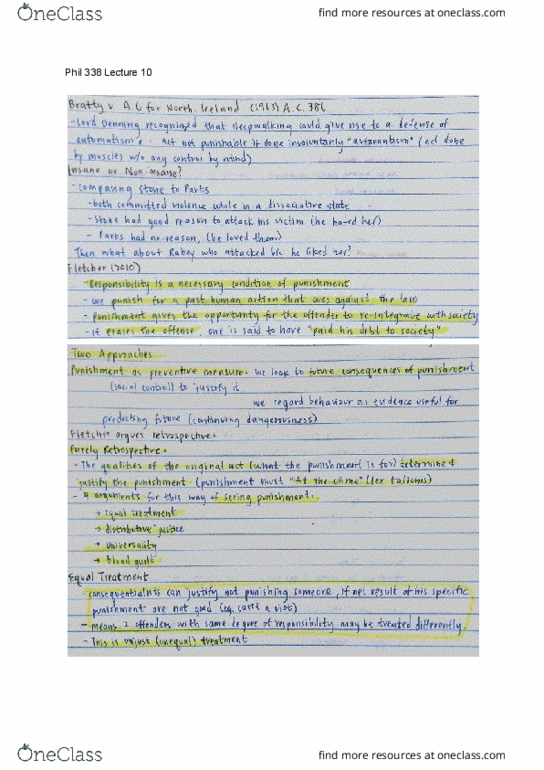 OneClass
find more resources at oneclass.com
Phil 338 Lecture 10
Bratty v. A.G for North. Ireland (1963) A.C. 386
- Lord Denning recognized that sleepwalking could give rise to a defense of
automatism. Act not punishable if done involuntarily "automatism" (act done
by muscles w/o any control by mind)
Insane or Non-insane?
- comparing Stone to Parks
- both committed violence while in a dissociative state
- Stone had good reason to attack his victim (he hated her)
- Parks had no reason, (he loved them)
Then what about Rabey who attacked b/c he liked her?
Fletcher (2010)
- Responsibility is a necessary condition of punishment
- we punish for a past human action that was against the law
- punishment gives the opportunity for the offender to re-integrate with society
- it erases the offense, one is said to have "paid his debt to society"
Two Approaches
Punishment as preventive measure: we look to future consequences of punishment
(social control) to justify it
we regard behaviour as evidence useful for
predicting future (continuing dangerousness)
Fletcher argues retrospective.
Purely Retrospective.
- The qualities of the original act (what the punishment is for) determine &
justify the punishment (punishment must "fit the crime" (lex talionis)
- 4 arguments for this way of seeing punishment.
→ equal treatment
→ distributive justice
→ universality
→ blood guilt
Equal Treatment
- consequentialists can justify not punishing someone, if net result of his specific
punishment are not good (eg. cause a riot)
- Means 2 offenders with same degree of responsibility may be treated differently.
- This is unjust (unequal) treatment
OneClass
find more resources at oneclass.com